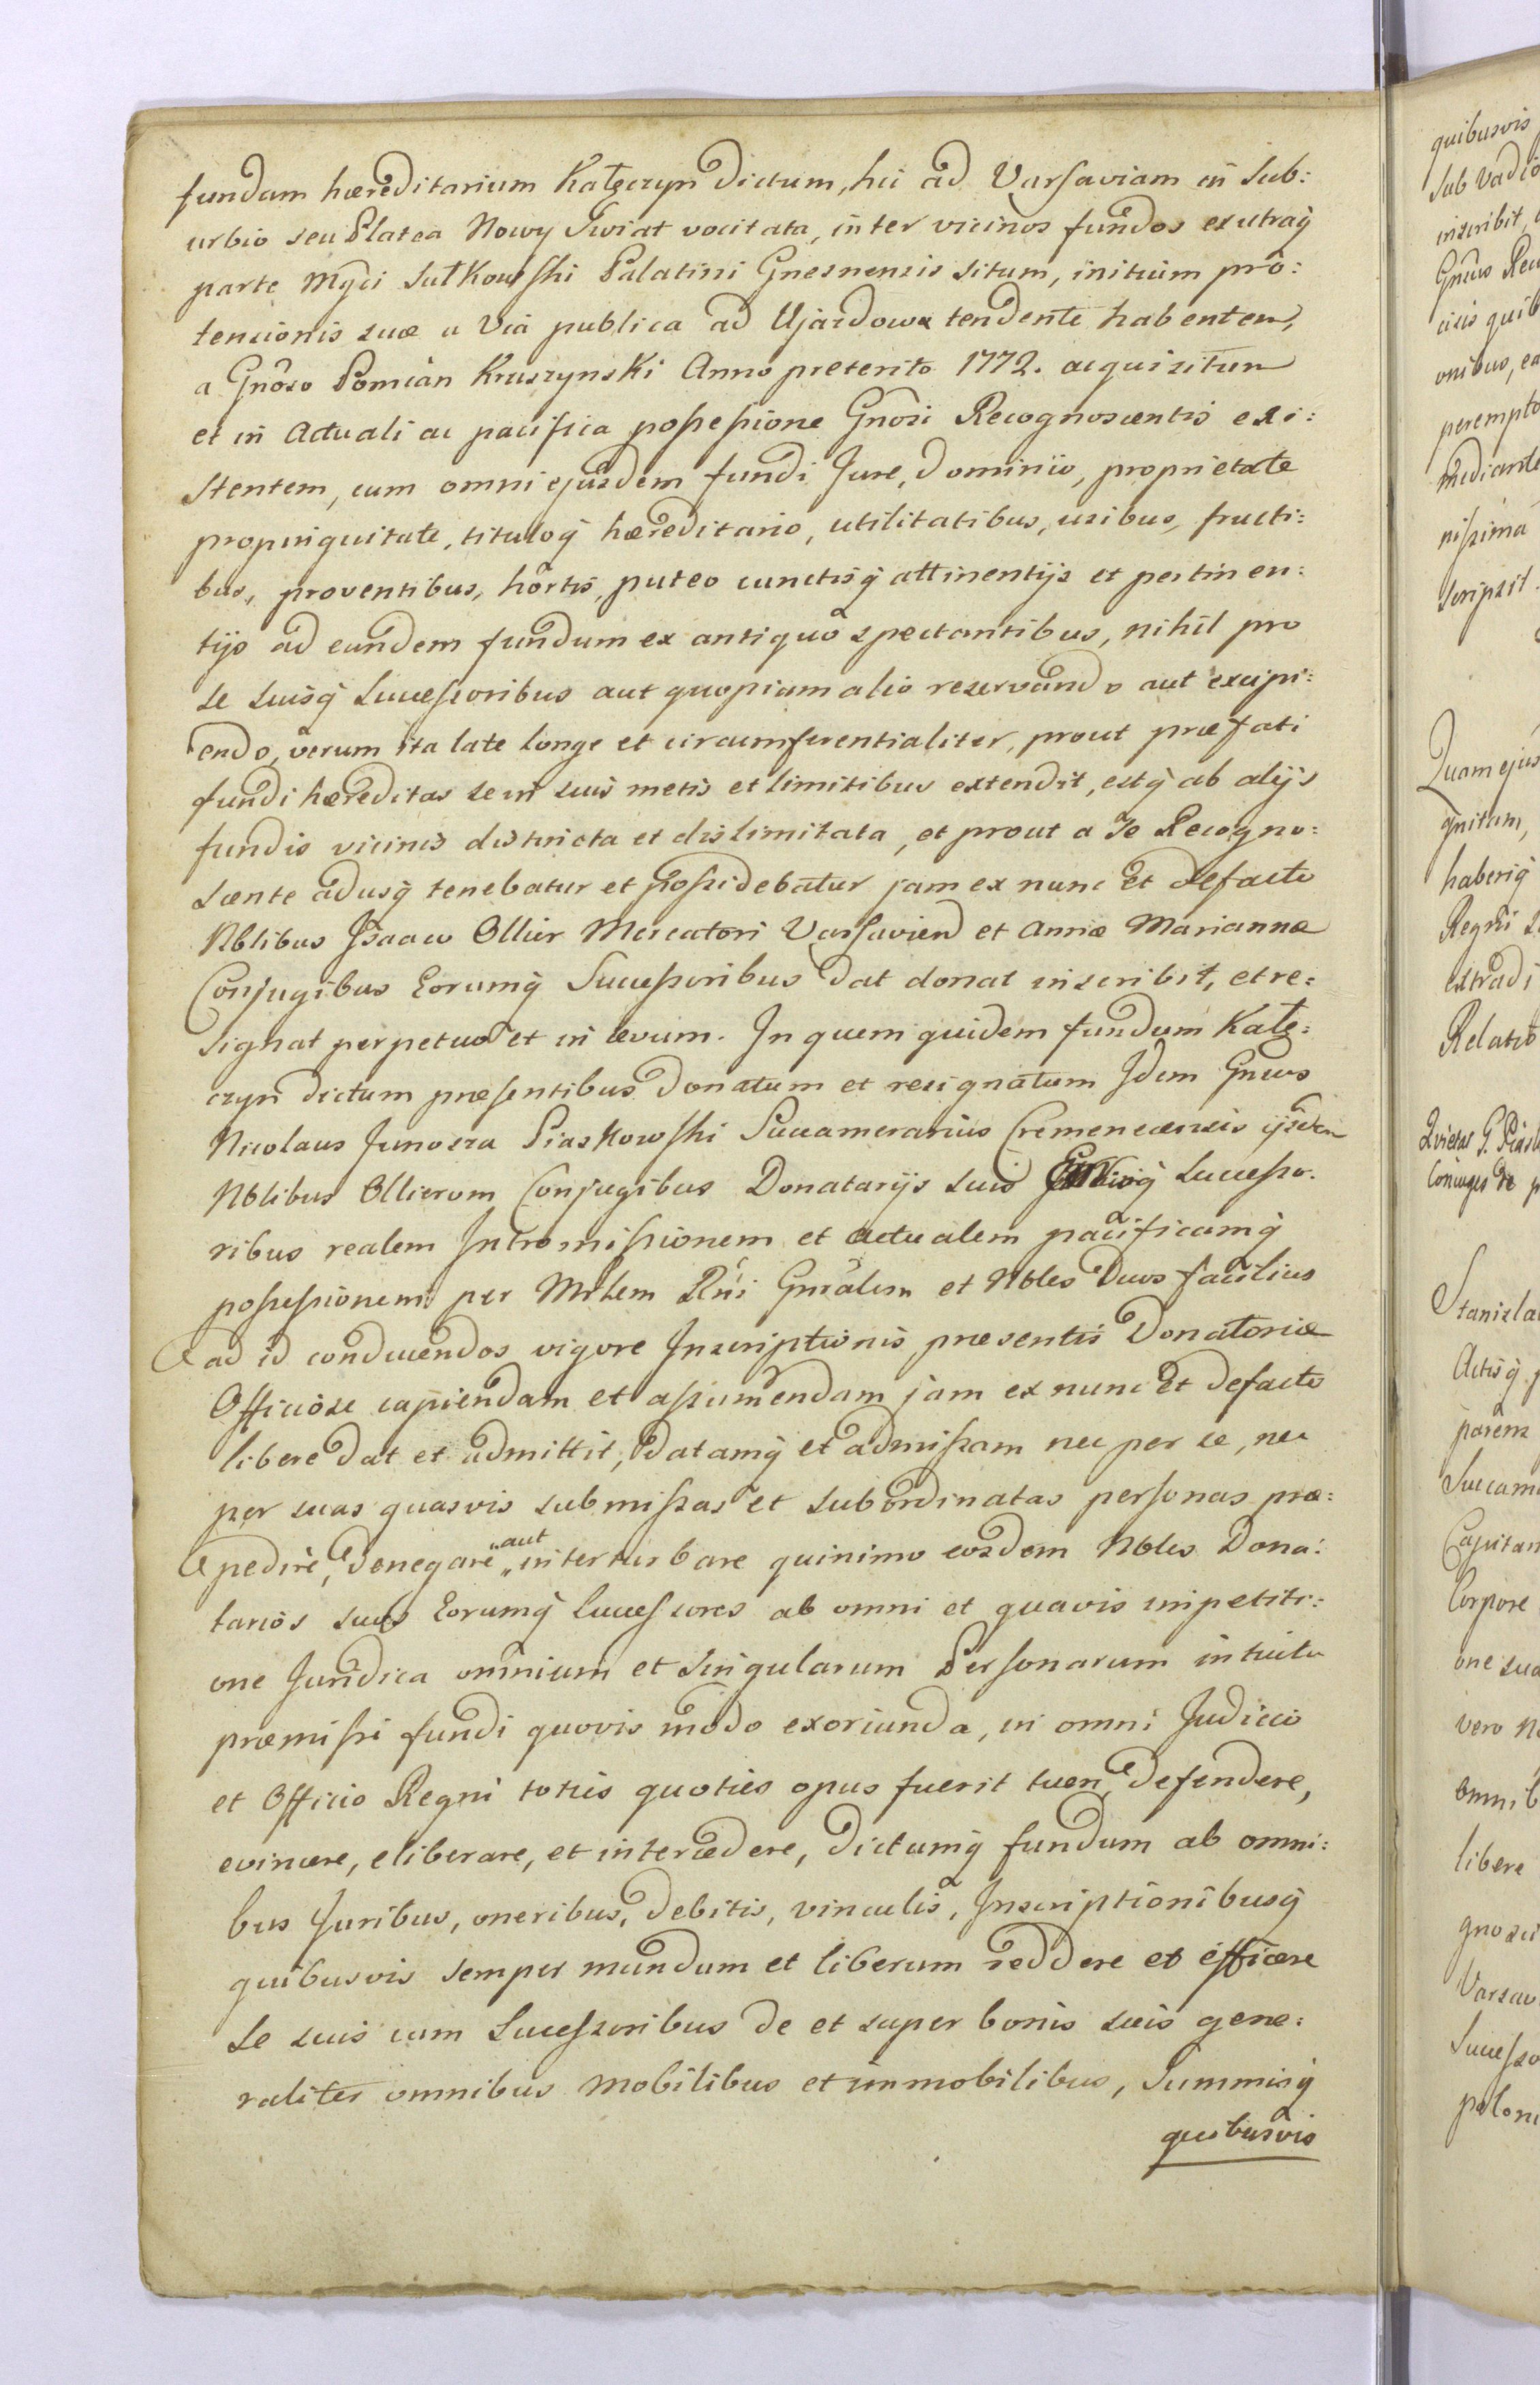 fundum hæreditarium Kałęczyn dictum, hic ad Varsaviam in Sub:
urbio seu Platea Nowy Swiat vocitata, inter vicinos fundos ex utraq̃
parte Mg̃ci Sułkowski Palatini Gnesnensis situm, initium pro:
tensionis suæ a Via publica ad Ujazdowa tendente habentem,
a Gñoso Pomian Kruszynski Anno preterito 1772. acquisitum
et in Actuali ac pacifica possessione Gñosi Recognoscentis exi:
stentem, cum omni ejusdem fundi Jure, Dominio, proprietate
propinquitate, tituloq̃ hæreditario, utilitatibus, usibus, fructi:
bus, proventibus, hortis, puteo cunctisq̃ attinentijs et pertinen:
tijs ad eundem fundum ex antiquo spectantibus, nihil pro
se suisq̃ Successoribus aut quopiam alio reservando aut excipi:
endo, verum ita late longe et circumferentialiter, prout præfati
fundi hæreditas se in suis metis et limitibus extendit, estq̃ ab alijs
fundis vicinis districta et dislimitata, et prout a Se Recogno:
scente adusq̃ tenebatur et possidebatur jam ex nunc et defacto
Nblibus Jsaaco Ollier Mercatori Varsavien̄ et Annæ Mariannæ
Conjugibus Eorumq̃ Successoribus dat donat inscribit, et re:
signat perpetuo et in ævum. Jn quem quidem fundum Kałę:
czyn dictum præsentibus donatum et resignatum Jdem Gnsus
Nicolaus Junosza Piaskowski Succamerarius Cremenecensis ijsdem
Nblibus Ollierom Conjugibus Donatarijs suis Successo:
ribus realem Jntromissionem et actualem pacificamq̃
possessionem per Mrlem Rñi Gnrãlem et Nbles Duos facilius
ad id conducendos vigore Jnscriptionis præsentis Donatoriæ
Officiose capiendam et assumendam jam ex nunc et defacto
libere dat et admittit, datamq̃ et admissam nec per se, nec
per suas quasvis submissas et subordinatas personas præ:
pedire, denegare „aut„ interturbare quinimo eosdem Nbles Dona:
tarios suos Eorumq̃ Successores ab omni et quavis impetiti:
one Juridica omnium et singularum Personarum intuitu
præmissi fundi quovis modo exoriunda, in omni Judicio
et Officio Regni toties quoties opus fuerit tueri, defendere,
evincere, eliberare, et intercedere, dictumq̃ fundum ab omni:
bus Juribus, oneribus, debitis, vinculis, Jnscriptionibusq̃
quibusvis semper mundum et liberum reddere et efficere
Se suis cum Successoribus de et super bonis suis gene:
raliter omnibus mobilibus et immobilibus, Summisq̃
quibusvis
quibusvis
Sub Vadio
inscribit,
peremptor
mediante
nissima
scripsit.
Quam ejus
haberiq̃
Regni
extradi
Relatio
Conjuges de
Stanisla
Actisq̃
Succam
Capitan
Corpore
one sua
vero
omnib
libere
Varsav
Successo